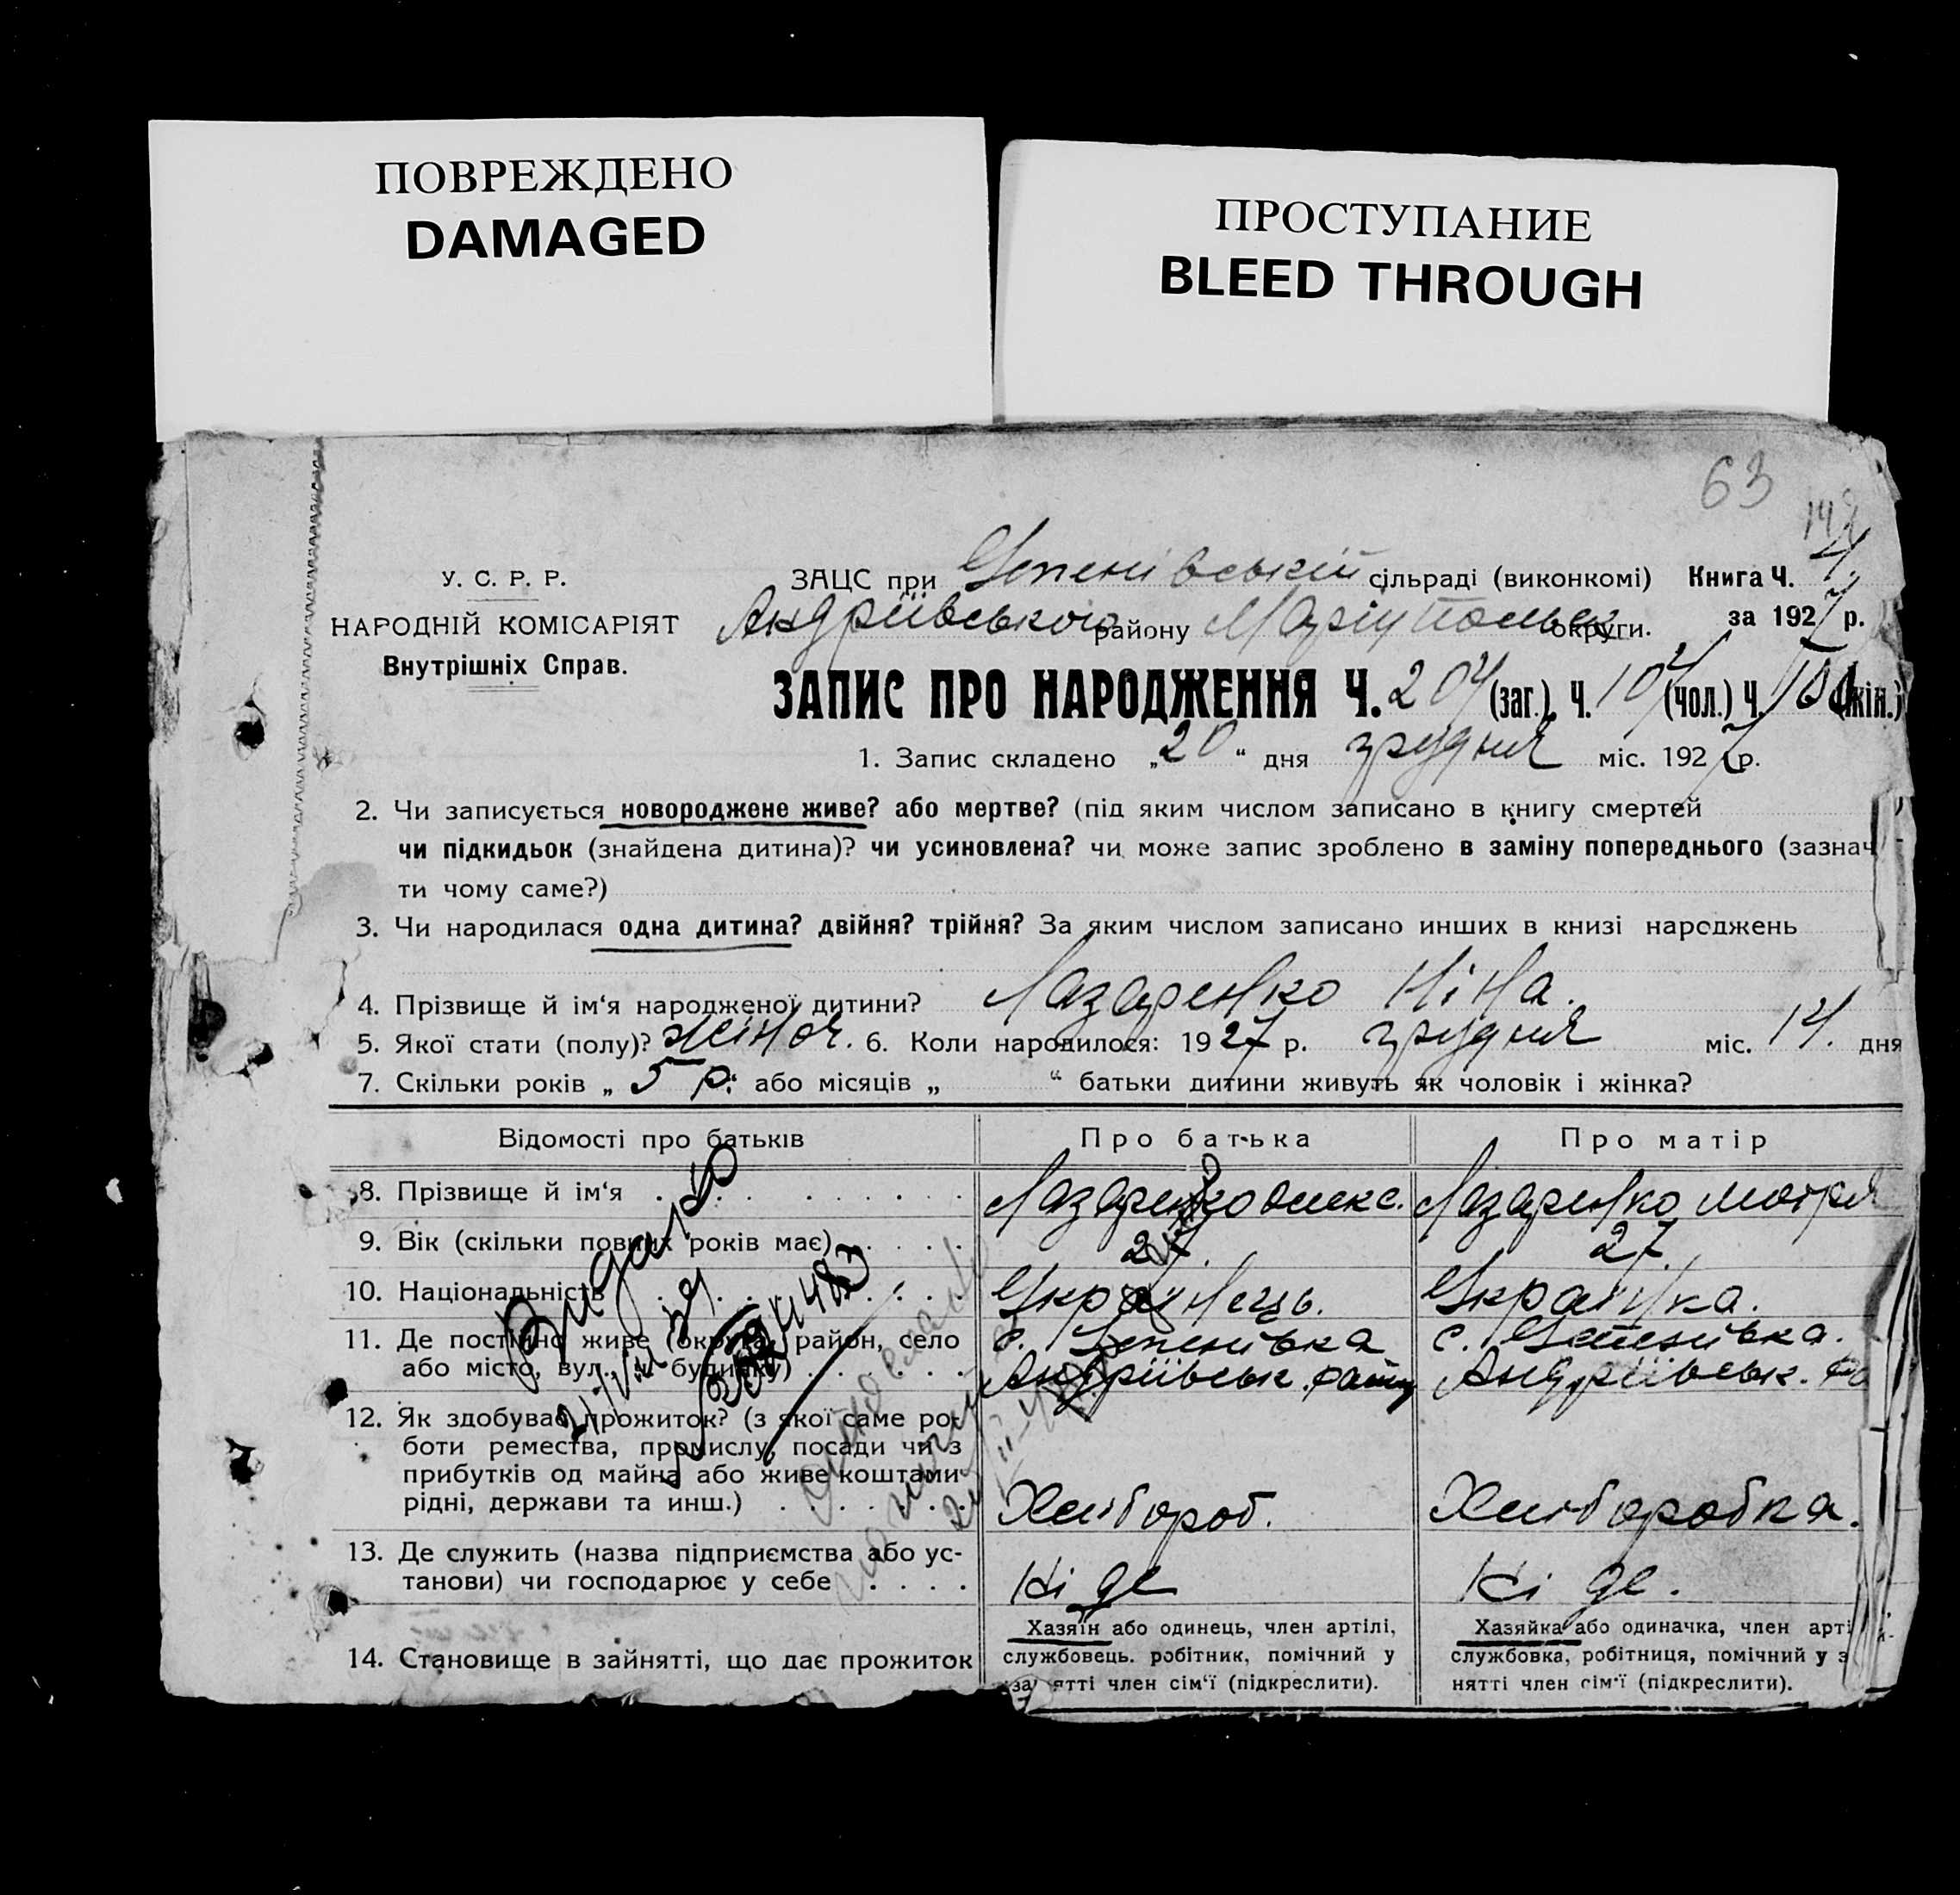 ПОВРЕЖДЕНО
DAMAGED
ПРОСТУПАНИЕ
BLEED THROUGH
63
У. С. Р. Р.
НАРОДНІЙ КОМІСАРІЯТ
Внутрішніх Справ.
ЗАЦС при Успенівській сільраді (виконкомі) Книга Ч. 4.
Андріївського району Маріупольск округи. за 1927 р.
ЗАПИС ПРО НАРОДЖЕННЯ Ч. 204 (заг.). Ч. 104 (чол.) Ч. 100 (жін.)
1. Запис складено „20“ дня грудня міс. 1927 р.
2. Чи записується новороджене живе? або мертве? (під яким числом записано в книгу смертей
чи підкидьок (знайдена дитина)? чи усиновлена? чи може запис зроблено в заміну попереднього (зазнач
ти чому саме?)
3. Чи народилася одна дитина? двійня? трійня? За яким числом записано инших в книзі народжень
4. Прізвище й ім‘я народженої дитини? Лазаренко Ніна.
5. Якої стати (полу)? жіноч. 6. Коли народилося: 1927 р. грудня міс. 14. дня
7. Скільки років „5 р.“ або місяців „ “ батьки дитини живуть як чоловік і жінка?
Відомості про батьків Про батька Про матір
8. Прізвище й ім‘я Лазаренко Олекс. Лазаренко Мотря
9. Вік (скільки повних років має) 27. 27.
10. Національність Українець. Українка.
11. Де постійно живе (округа, район, село с. Успенівка с. Успенівка.
або місто, вул. ч. будинку) Андріївськ. району Андріївськ.
12. Як здобуває прожиток? (з якої саме ро-
боти ремества, промислу, посади чи з
прибутків од майна або живе коштами
рідні, держави та инш.) Хлібороб. Хлібороbка.
13. Де служить (назва підприємства або ус-
танови) чи господарює у себе Ні де Ні де.
14. Становище в зайнятті, що дає прожиток
Хазяїн або одинець, член артілі,
службовець. робітник, помічний у
за ятті член сім‘ї (підкреслити).
Хазяйка або одиначка, член арті
службовка, робітниця, помічний у з
нятті член сім‘ї (підкреслити).